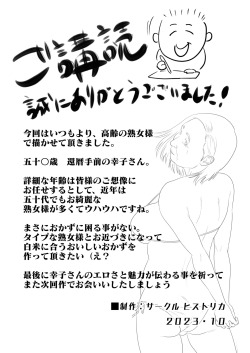 ご講読
誠にありがとうございました!
今回はいつもより、高齢の熟女様
で描かせて頂きました。
五十〇歳　還暦手前の幸子さん。
詳細な年齢は皆様のご想像に
お任せするとして、近年は
五十代でもお綺麗な
熟女様が多くてウハウハですね。
まさにおかずに困る事がない。
タイプな熟女様とお近づきになって
白米に合うおいしいおかずを
作って頂きたい（え?
最後に幸子さんのエロさと魅力が伝わる事を祈って
また次回作でお会いいたしまししょう
■制作：サークル ヒストリカ
２０２３・１０